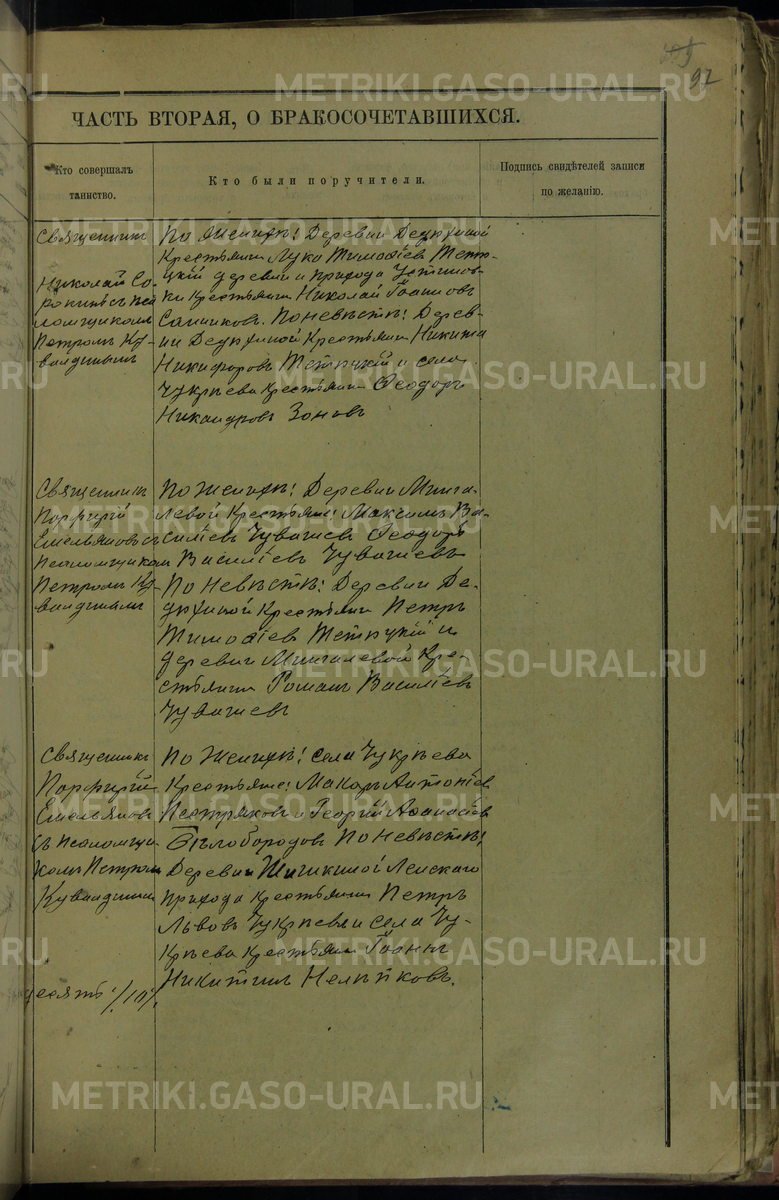 92
ЧАСТЬ ВТОРАЯ, О БРАКОСОЧЕТАВШИХСЯ.
Кто совершалъ
таинство.
Кто были поручители.
Подпись свидѣтелей записи
по желанію.
Священникъ
Николай Со-
рокинъ съ пса
ломщикомъ
Петромъ Ку-
валдинымъ
По Женихѣ: Деревни Дедюхиной
Крестьянинъ Лука Тимофіевъ Тетю-
цкій деревни и прихода Устинов-
ки Крестьянинъ Николай Іоанновъ
По невѣстѣ: Дерев-
ни Дедюхиной Крестьянинъ Никита
Никифоровъ Тетюцкій и села
Чукрѣева Крестьянинъ Ѳеодоръ
Никандровъ Зоновъ
Священникъ
Порфирій
Емельяновъ съ
Псаломщикомъ
Петромъ Ку-
валдинымъ
По Женихѣ: Деревни Минга-
левой Крестьяне: Максимъ Ва-
силіевъ Чувашевъ Ѳеодоръ
Василіевъ Чувашевъ
По Невѣстѣ: Деревни Де-
дюхиной Крестьянинъ Петръ
Тимофіевъ Тетюцкій и
деревни Мингалевой Кре-
стьянинъ Романъ Василіевъ
Чувашевъ
Священникъ
Порфирій
Емельяновъ
съ псаломщи-
комъ Петромъ
Кувалдинымъ
По Женихѣ: села Чукрѣева
Крестьяне: Макаръ Антоніев
Пестряковъ и Георгій Аѳанасіевъ
Бѣлобородовъ По Невѣстѣ:
Деревни Жичикиной Ленскаго
прихода крестьянинъ Петръ
Львовъ Чукрѣевъ и села Чу-
крѣева крестьянинъ Іоаннъ
Никитинъ
десять /10/
METRIKI.GASO-URAL.RU